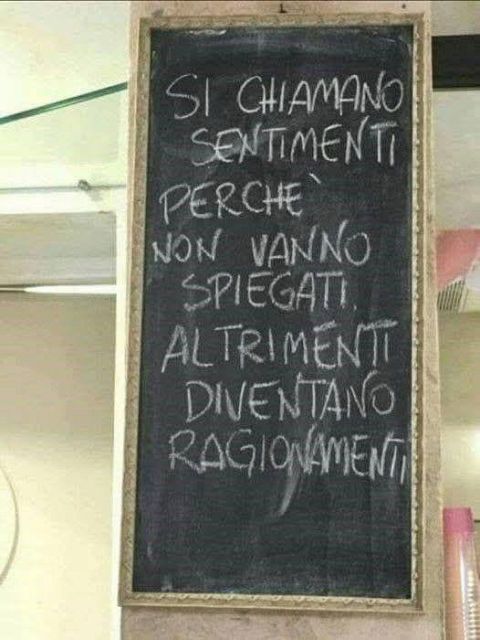 SI CHIAMANO
SENTIMENTI
PERCHÈ
NON VANNO
SPIEGATI.
ALTRIMENTI
DIVENTANO
RAGIONAMENTI